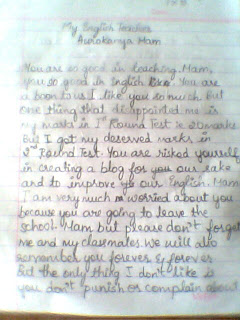 My English Teacher
Mam
You are so good in teaching. Mam,
you so good in English. You are
a boon to us I like you so much but
one thing that disappointed me is
my marks in 1st Round Test ie 20 marks
But I got my deserved marks in
2nd Round Test. You are risked yourself
in creating a blog for you our sake
and to improve our English. Mam
I am very much worried about you
because you are going to leave the
school. Mam but please don't forget
me and my classmates we will also
remember you forever & forever
But the only thing I don't like is
you don't punish or complain about